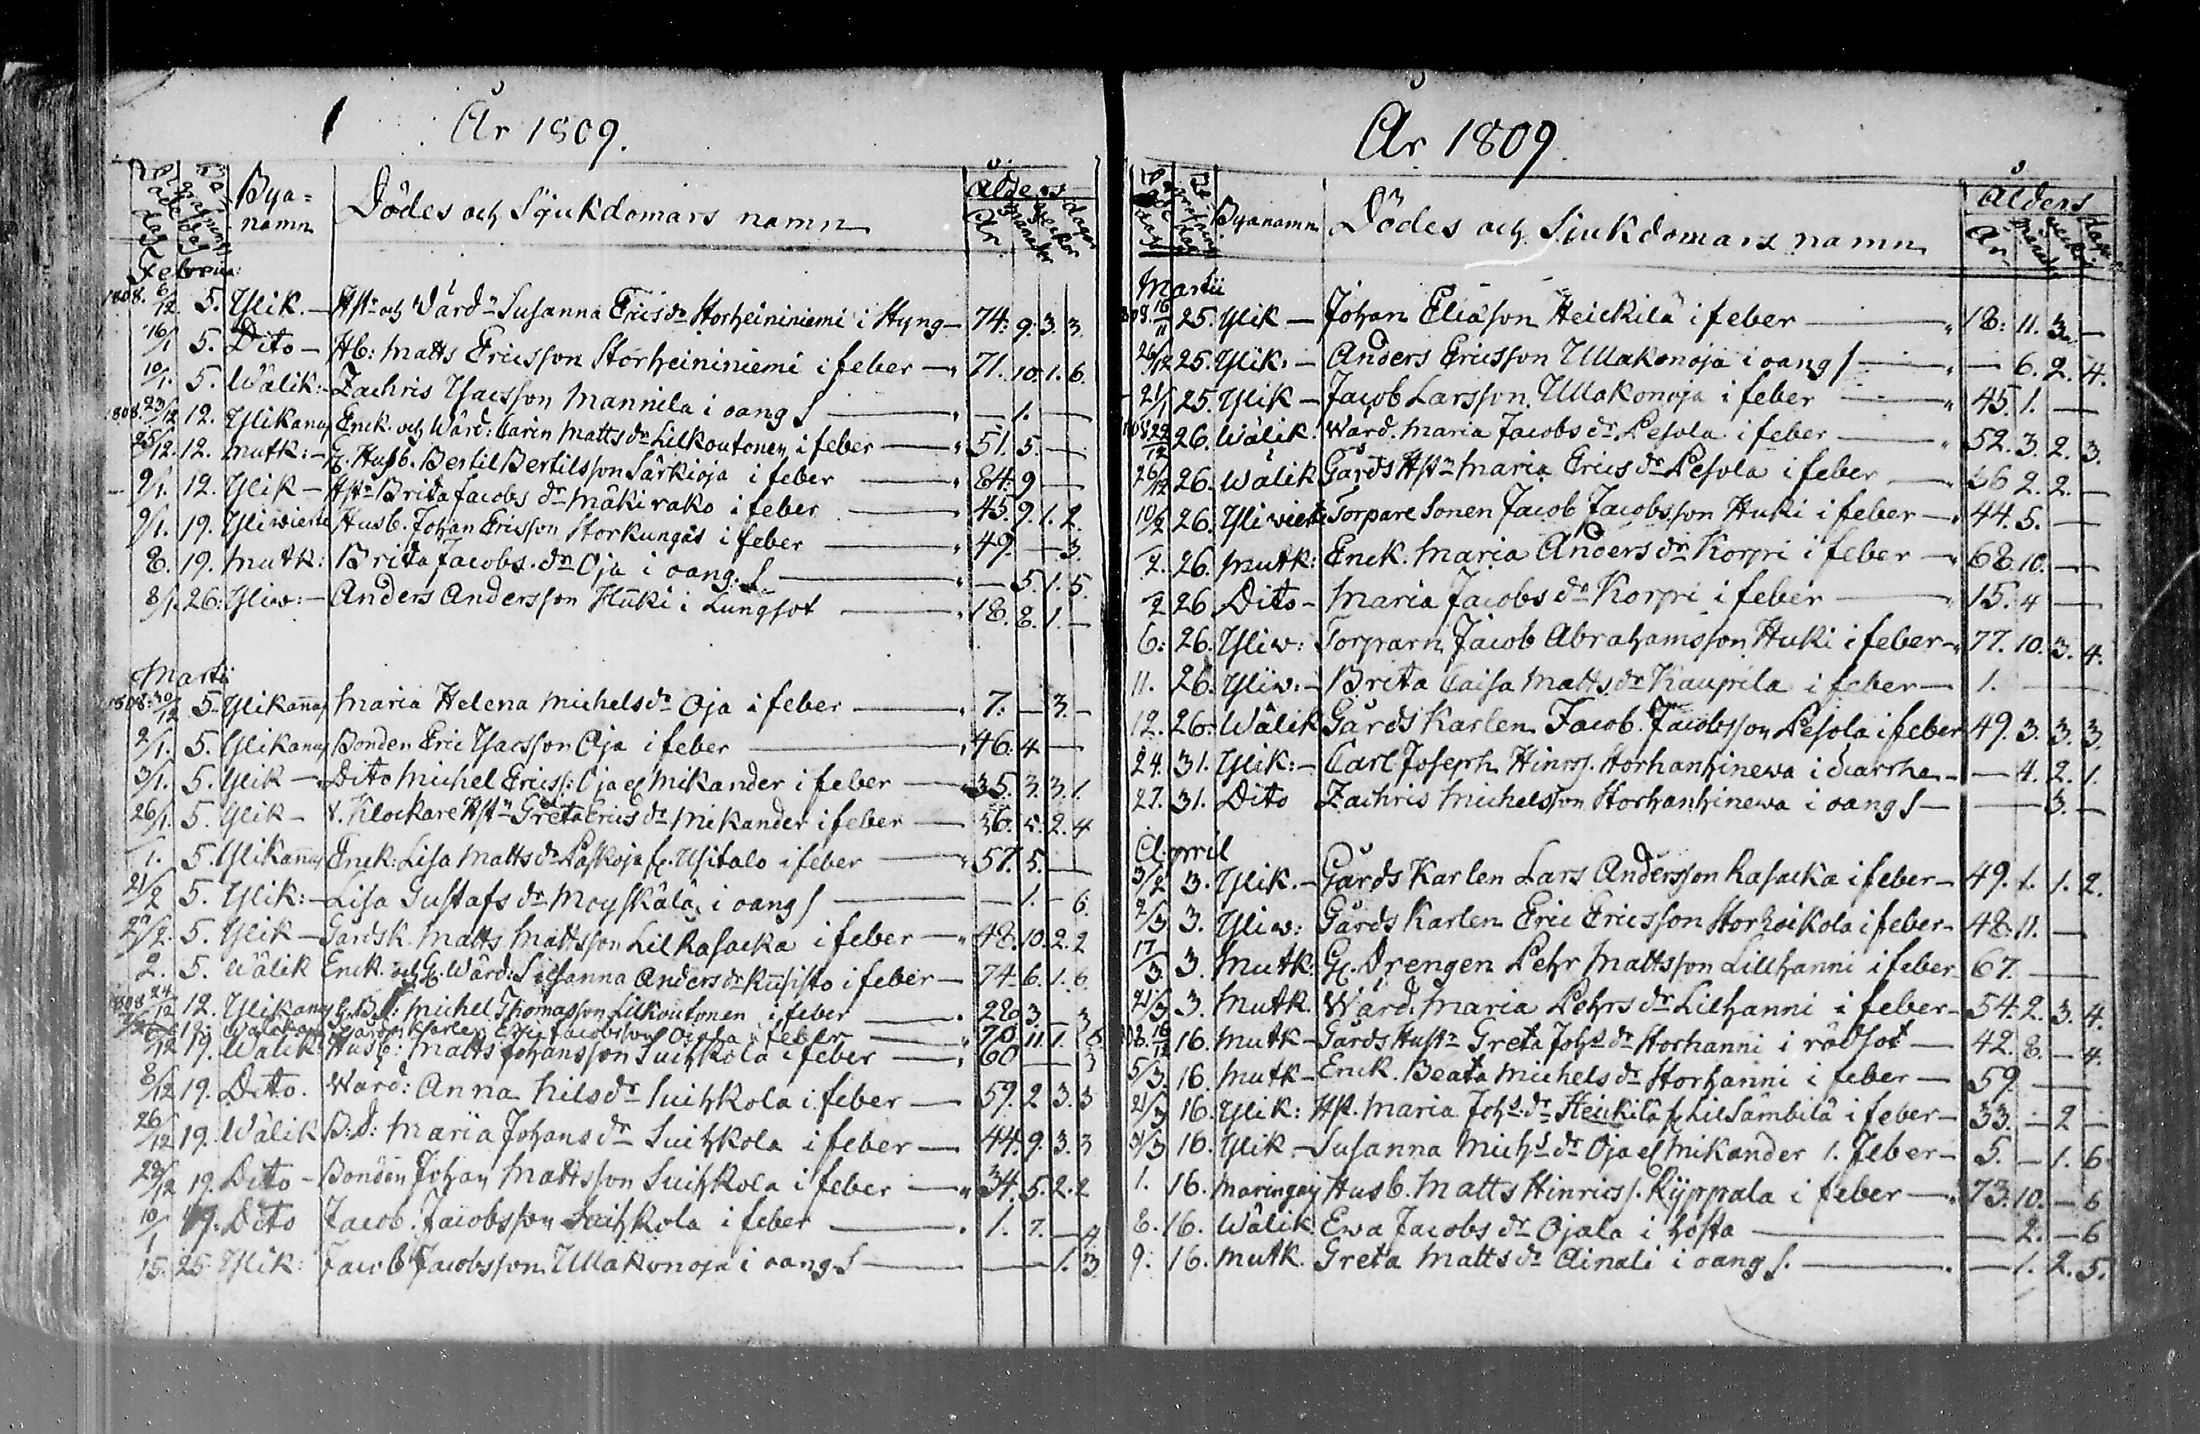 År 1809.
Dödedag Begrafningsdag Bya=namn Dödes och Sjukdomars namn Ålders År månader Veckor dagar
Februa:
1808. 6/12 5. Ylik. — Hstr och Värdn Susanna Erics dr Storheininiemi i Styng — 74. 9. 3. 3.
16/1 5. Dito — Hb: Matts Ericsson Storheininiemi i feber — 71. 10. 1. 6.
10/1. 5. Wälik: — Zachris Ysacsson Mannila i oang S — — 1. —
1808. 23/12 12. Ylikanus Enck. och Wärd: Carin Matts dr Lilkoutonen i feber — 51. 5. —
25/12. 12. Mutk: — Husb. Bertil Bertilsson Särkioja i feber — 84. 9 —
9/1. 12. Ylik — Hstr Brita Jacobs dr Mäkirako i feber — 45. 9. 1. 2.
9/1. 19. Yliwierte Husb. Johan Ericsson Storkungas i feber — 49. — 3.
8. 19. Mutk: Brita Jacobs. dr Oja i oang. S — — 5. 1. 5
8/1. 26. Yliw: — Anders Andersson Huki i Lungsot — 18. 8. 1. —
Martii
1808. 30/12 5. Ylikanus Maria Helena Michels dr Oja i feber — 7. — 3. —
2/1. 5. Ylikanus Bonden Eric Ysacsson Oja i feber — 46. 4 —
3/1. 5. Ylik — Dito Michel Ericss: Oja el Mikander i feber — 35. 3. 3. 1.
26/1. 5. Ylik — Klockare Hstr Greta Erics dr Mikander i feber — 36. 5. 2. 4
/1. 5. Ylikanus Enck: Lisa Matts dr Paskoja Usitalo i feber — 57. 5. —
21/2 5. Ylik: — Lisa Gustafs dr Moyskälä i oang S — — 1. — 6.
27/2. 5. Ylik — Gårdsk. Matts Mattsson Lilkasacka i feber — 48. 10. 2. 2
2. 5. Wälik Enck. och Wärd: Susanna Anders dr Kusisto i feber — 74. 6. 1. 6.
1808 24/12 12. Ylikanus Michel Thomasson Lilkoutonen i feber — 28. 3 — 3
12. Gårds Karlen Eric Jacobsson Ojala i feber — 70. 11. 1. 6
/12 19. Wälik: Husb: Matts Johansson Suihkola i feber — 60 — 3
8/12 19. Dito. Wärd: Anna Nils dr Suihkola i feber — 59. 2 3. 3
26/12 19. Wälik B:d: Maria Johans dr Suihkola i feber — 44. 9. 3. 3
29/12 19. Dito — Bonden Johan Mattsson Suihkola i feber — 34. 5. 2. 2
10/1 19. Dito Jacob. Jacobsson Suihkola i feber — 1. 7. — 4
15. 25. Ylik: Jacob Jacobsson Ullakonoja i oang S — — 1. 3.
År 1809.
Dödedag Begrafningsdag Byanamn Dödes och Sjukdomars namn Ålders År månader Veckor dagar
Martii
1808. 16/11 25. Ylik — Johan Eliæson Heickilä i feber — 18. 11. 3. —
26/12 25. Ylik: — Anders Ericsson Ullakonoja i oang S — — 6. 2. 4.
21/1 25. Ylik — Jacob Larsson Ullakonoja i feber — 45. 1. —
1808 22/12 26. Wälik. Wärd. Maria Jacobs dr Pesola i feber — 52. 3. 2. 3.
26/12 26. Wälik Gårds Hstr Maria Erics dr Pesola i feber — 36 2. 2. —
10/2 26. Yliwierte Torpare Sonen Jacob Jacobsson Huki i feber — 44. 5. —
/2. 26. Mutk: Enck. Maria Anders dr Korpi i feber — 68. 10. —
/2 26 Dito — Maria Jacobs dr Korpi i feber — 15. 4 —
6. 26. Yliw: Torparn Jacob Abrahamsson Huki i feber — 77. 10. 3. 4.
11. 26. Yliw: — Brita Caisa Matts dr Kauppila i feber — 1. —
12. 26. Wälik Gårds Karlen Jacob. Jacobsson Pesola i feber 49. 3. 3. 3.
24. 31. Ylik: — Carl Joseph Hinrss. Storhanhinewa i diarrhe — — 4. 2. 1.
27. 31. Dito Zachris Michelsson Storhanhinewa i oang S — — 3. —
April
3/2 3. Ylik. — Gårds Karlen Lars Andersson Rasacka i feber — 49. 1. 1. 2.
2/3 3. Yliw: Gårds Karlen Eric Ericsson Storhoikola i feber — 48. 11. —
17/3 3. Mutk: Gl. Drengen Pehr Mattsson Lillhanni i feber 67. —
21/3 3. Mutk. Wärd. Maria Pehrs dr Lilhanni i feber — 54. 2. 3. 4.
1808. 16/12 16. Mutk — Gårds Hustr Greta Johs dr Storhanni i rödsot — 42. 8. — 4.
5/3. 16. Mutk — Enck. Beata Michels dr Storhanni i feber — 59. —
21/3 16. Ylik: Hst. Maria Johs. dr Heickilä Lilsämbilä i feber — 33. — 2 —
31/3 16. Ylik — Susanna Michs dr Oja el Mikander i feber — 5. — 1. 6.
1. 16. Maringay Husb. Matts Hinricss. Ryppala i feber — 73. 10. — 6
8. 16. Wälik Ewa Jacobs dr Ojala i hosta — — 2. — 6
9. 16. Mutk. Greta Matts dr Ainali i oang S. — — 1. 2. 5.